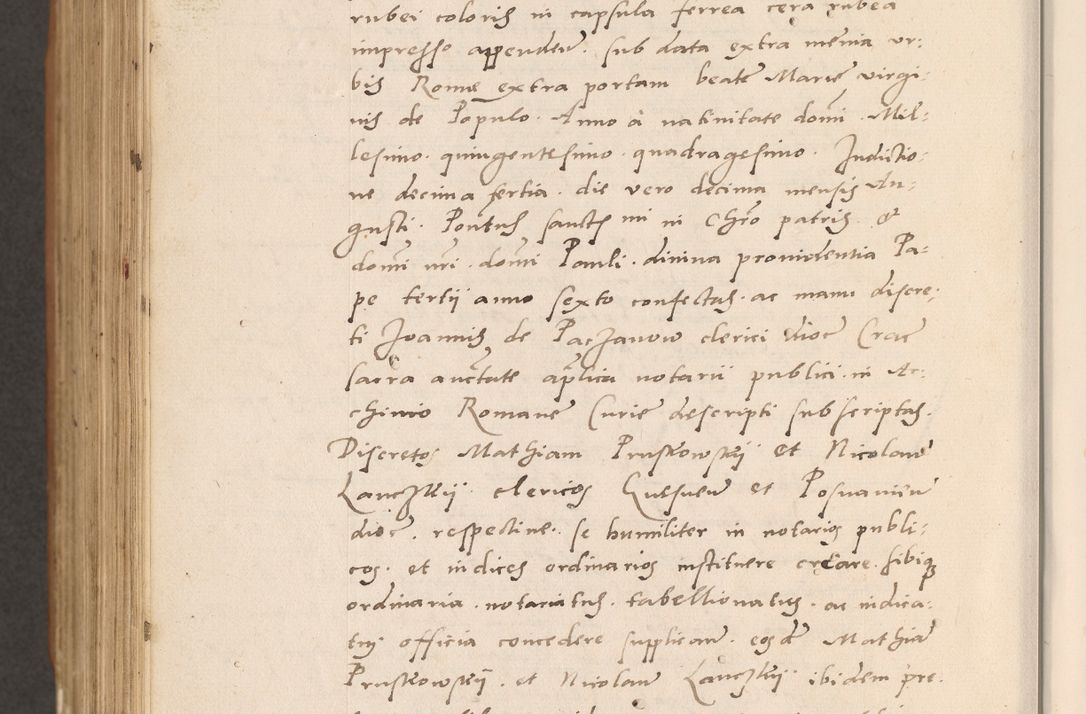 rubei coloris in capsula ferrea cera rubea
impresso appenden. sub data extra menia ur:
bis Rome extra portam beate Marie virgi:
nis de Populo. Anno à nativitate domi. Mil:
lesimo. quingentesimo. quadragesimo. Indictio:
ne decima tertia. die vero decima mensis Au:
gusti. Pontus sanctss mi in Chro patris &
domi nri. domi Pauli. divina providentia Pa:
pe tertij anno sexto confectas. ac manu discre:
ti Joannis de Paczanow clerici dioc Crac
sacra auctate aplica notarii publici in Ar:
chivio Romane Curie descripti subscriptas.
Discretos Mathiam Pruskowskij et Nicolaum
Lanczkij clericos Gnesnen et Posnanien
dioc. respective. se humiliter in notarios publi:
cos. et iudices ordinarios instituere creare. sibique
ordinaria. notariatus. tabellionatus. ac iudica:
tus officia concedere supplican. eosde Mathia
Pruskowskij. et Nicolaum Lanczkij ibidem pre.